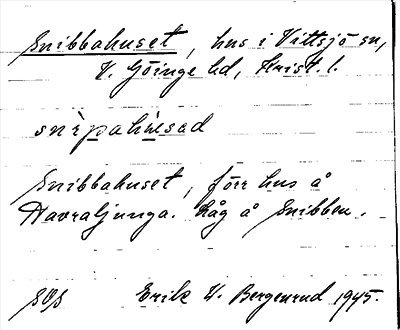 Snibbahuset, hus i Vittsjö sn,
V. Göinge hd, Krist. l.
snìpahu̇̀səd
Snibbahuset, förr hus å
Havraljunga. Låg å Snibben.
SOS Erik W. Bergenrud 1945.